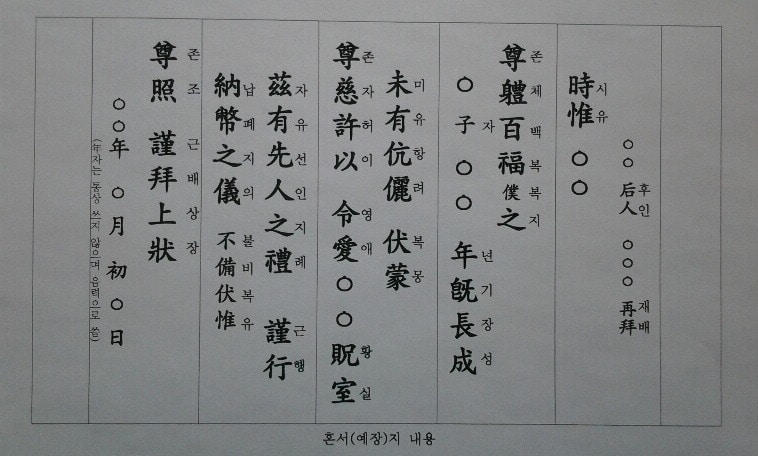 ○○ 后人후인 ○○○ 再拜재배
時惟시유 ○○
尊體百福僕之존체백복복지
○子자 ○○ 年旣長成년기장성
未有伉儷미유항려 伏蒙복몽
尊慈許以존자허이 令愛영애 ○○ 貺室황실
玆有先人之禮자유선인지례 謹行근행
納幣之儀납폐지의 不備伏惟불비복유
尊照존조 謹拜上狀근배상장
○○年 ○月 初○日
(年자는 통상 쓰지 않으며 음력으로 씀)
혼서(예장)지 내용